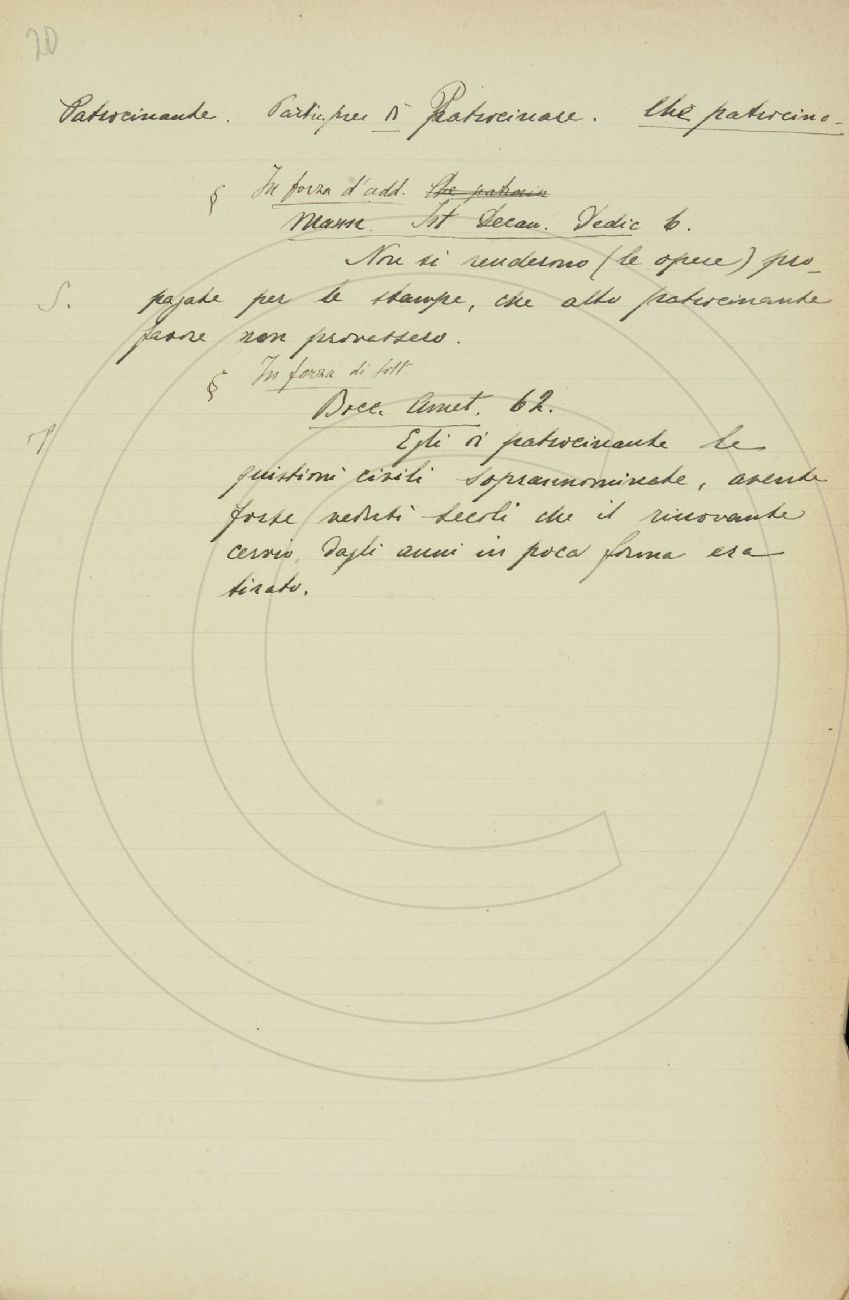 20
Patrocinante. Partic. pres di Patrocinare. Che patrocina.
§ In forza d'add. Che patrocin
Mann. Ist Decam. Dedic 6.
Non si renderono (le opere) pro-
S. pagate per le stampe, che alto patrocinante
favore non provassero.
§ In forza di sost
Bocc. Amet. 62.
Egli di patrocinante le
quistioni civili soprannominate, avente
forse veduti secoli che il rinovante
cervio, dagli anni in poca forma era
tirato.